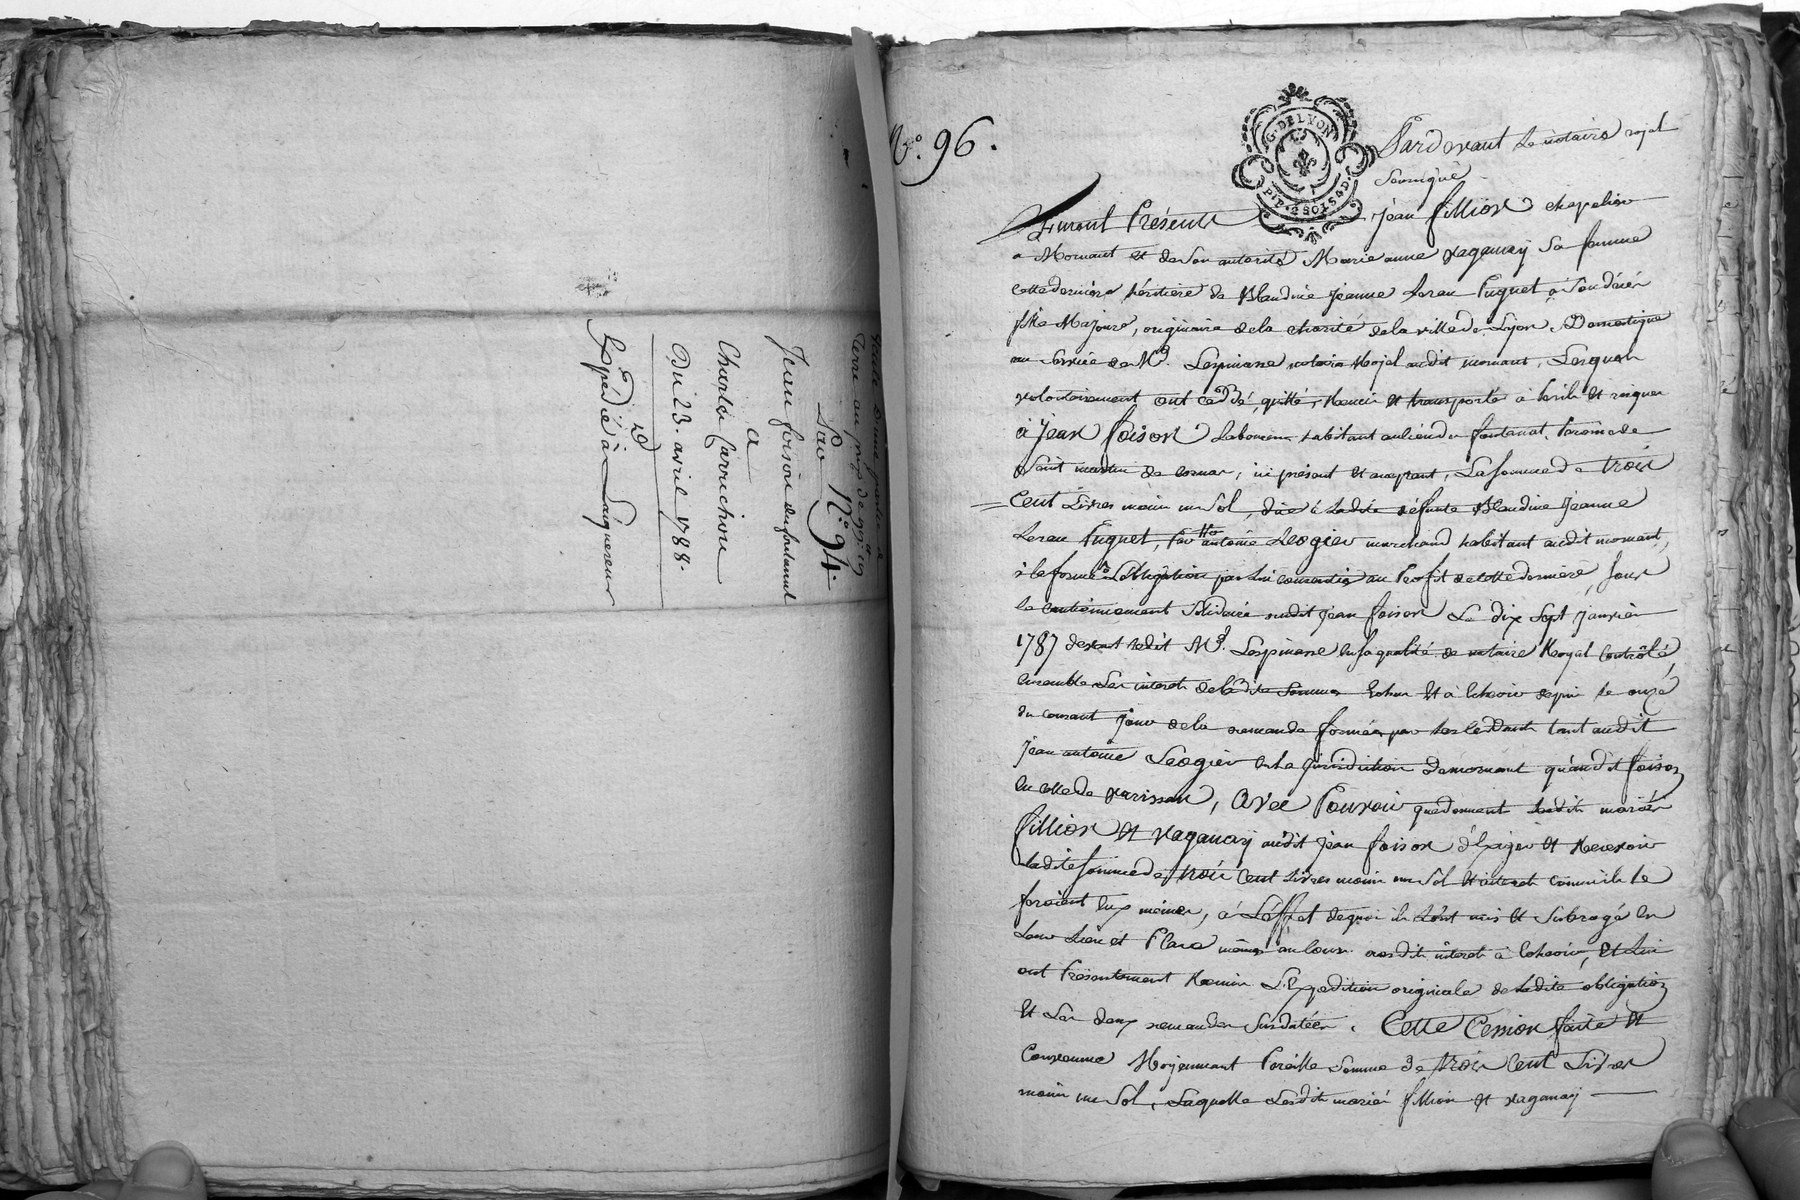 Vente d'une partie de
Terre au prix de
Par N.° 94.
Jean foison du fontanat
a
Charle Carrichon
Du 23. avril 1788.
Expédié à
N.ro 96.
G. DE LYON
P.P. 2 SOLS 4 D.
Pardevant le notaire royal
Soussigné
Furent Présents Jean fillion chapelier
a Mornant et de son autorité Marie anne Vaganay Sa femme
cette dernière héritière de Blandine Jeanne Leran Puguet a Son décès
fille Majeure, originaire de la charité de la ville de Lyon Domestique
au Service de M.e Lespinasse notaire Royal audit mornant, Lesquels
volontairement ont cedé, quitté, Remis et transporté à périls et risques
à Jean foison Laboureur habitant au lieu du fontanat, Paroisse de
Saint martin de cornas, ici présent et acceptant, La Somme de trois
Cent Livres moins un Sol, due à Ladite défunte Blandine Jeanne
Leran Puguet, Par antoine Leogier marchand habitant audit mornant,
à la forme de l'obligation par Lui consentie au Profit de cette dernière, Sous
le cautionnement Solidaire dudit Jean foison Le dix Sept Janvier
1787 devant ledit M.e Lespinasse en Sa qualité de notaire Royal Contrôlé,
ensemble Les interets de ladite Somme echus et à echeoir depuis le onze
du courant Jour de la demande formée par les Cedants tant audit
Jean antoine Leogier en la Jurisdiction de mornant qu'audit foison
en celle de, avec Pouvoir que donnent lesdits mariés
fillion et Vaganay audit Jean foison d'Exiger et Recevoir
Ladite Somme de trois Cent Livres moins un Sol et interets comme ils le
feroient Eux mêmes, à L'effet de quoi ils L'ont mis et Subrogé en
Leur Lieu et Place même au cours desdits interets à echeoir, et Lui
ont Présentement Remis L'Expedition originale de Ladite obligation
et Les deux demandes Susdatées. Cette Cession faite et
Convenue Moyennant Pareille Somme de trois Cent Livres
moins un Sol, Laquelle Lesdits mariés fillion et Vaganay